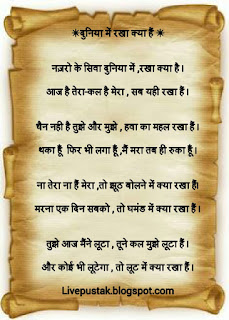 ✴दुनिया में रखा क्या हैं ✴
नज़रो के सिवा दुनिया में ,रखा क्या है।
आज है तेरा-कल है मेरा , सब यही रखा हैं।
चैन नही है तुझे और मुझे , हवा का महल रखा हैं।
थका हूँ फिर भी लगा हूँ ,मैं मरा तब ही रुका हूँ।
ना तेरा ना हैं मेरा ,तो झूठ बोलने में क्या रखा हैं।
मरना एक बिन सबको , तो घमंड में क्या रखा हैं।
तुझे आज मैंने लूटा , तूने कल मुझे लूटा हैं।
और कोई भी लूटेगा , तो लूट में क्या रखा हैं।
Livepustak.blogspot.com